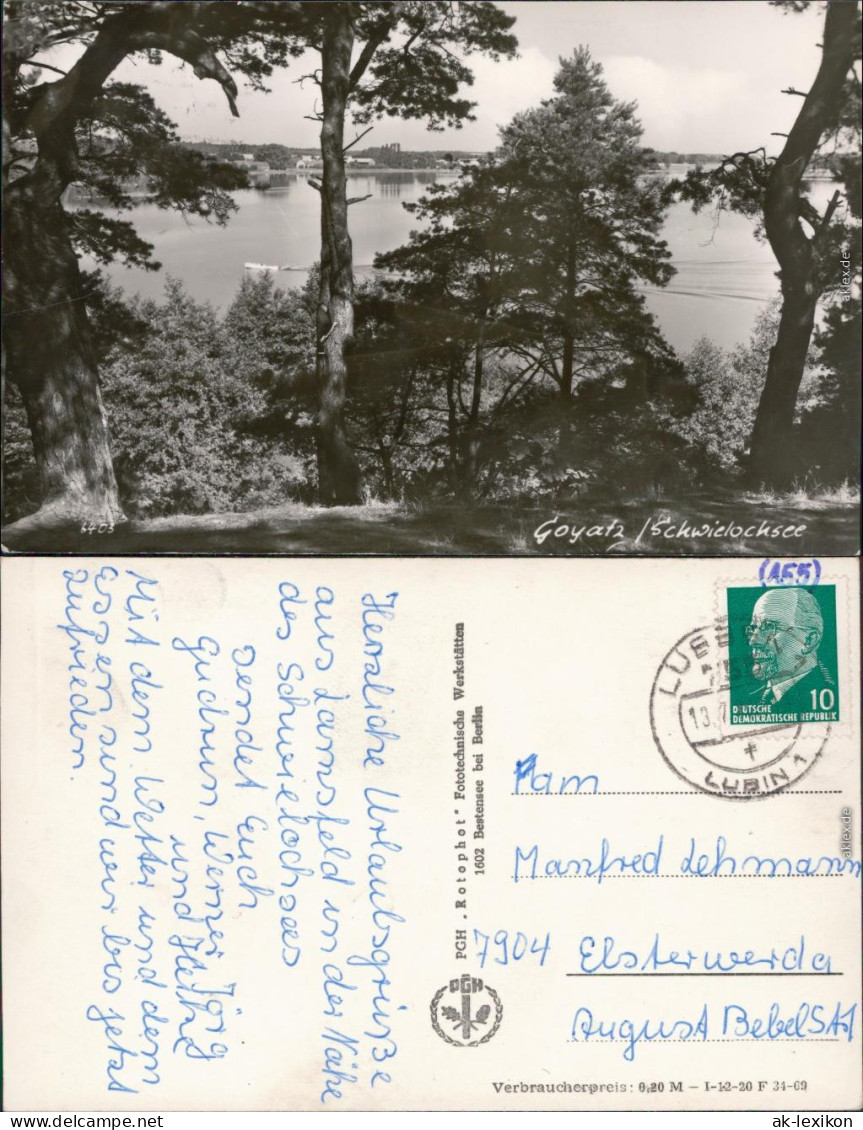 6403
Goyatz / Schwielochsee
Herzliche Urlaubsgrüße
aus Lamsfeld in der Nähe
des Schwielochsees
sendet Euch
Gudrun, Werner, Jörg
und
Mit dem Wetter und dem
Essen sind wir bis jetzt
zufrieden.
PGH „Rotophot" Fototechnische Werkstätten
1602 Bestensee bei Berlin
PGH
(155)
LUBIN 1
13.7
DEUTSCHE
DEMOKRATISCHE REPUBLIK
10
Fam
Manfred Lehmann
7904 Elsterwerda
August Bebel Str 1
Verbraucherpreis: 0,20 M – I-12-20 F 34-69
aklex.de
aklex.de
aklex.de
ak-lexikon